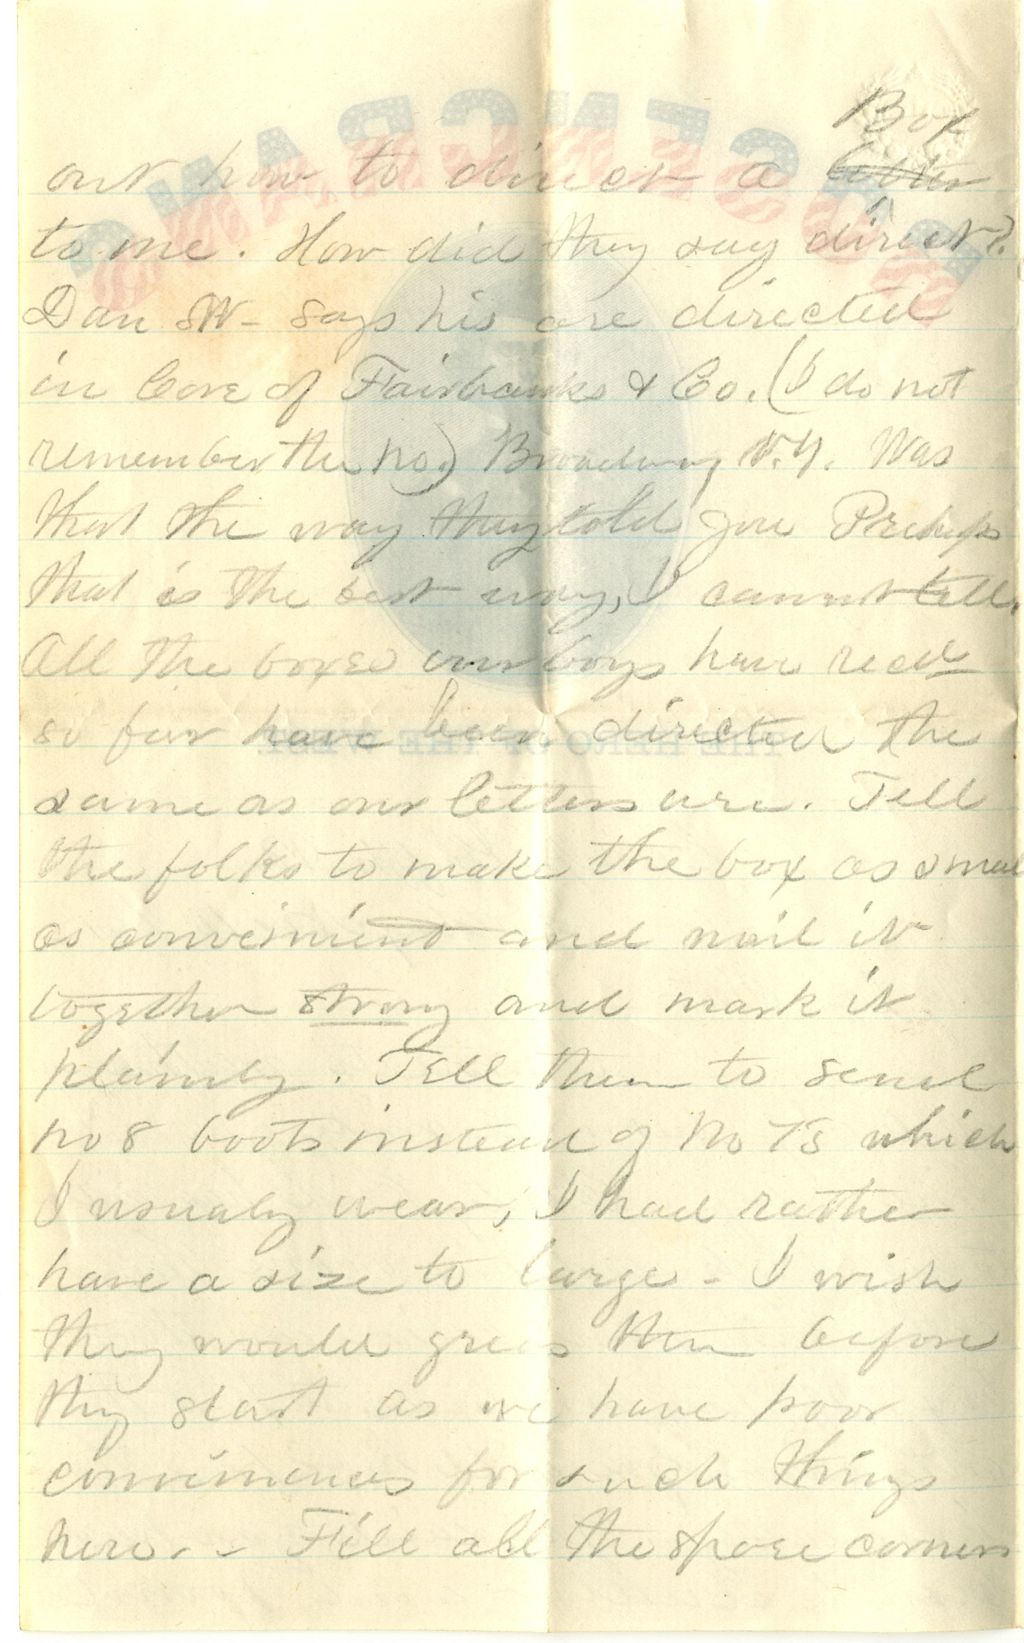 Box
out how to direct a letter
to me. How did they say direct?
Dan W- says his are directed
in Care of Fairbanks & Co. (I do not
remember the No.) Broadway N.Y. Was
that the way they told you Perhaps
that is the best way, I cannot tell.
All the boxes our boys have recd
so far have been directed the
same as our letters are. Tell
the folks to make the box as small
as convenient and nail it
together strong and mark it
plainly. Tell them to send
no 8 boots instead of No 7s which
I usualy wear, I had rather
have a size to large - I wish
they would greas them before
they start as we have poor
conveniences for such things
here. - Fill all the spare corners